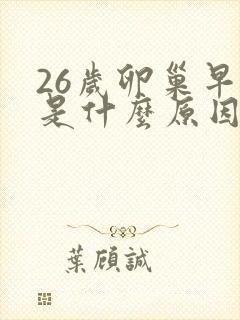 26歲卵巢早
是什麼原因
葉顧誠